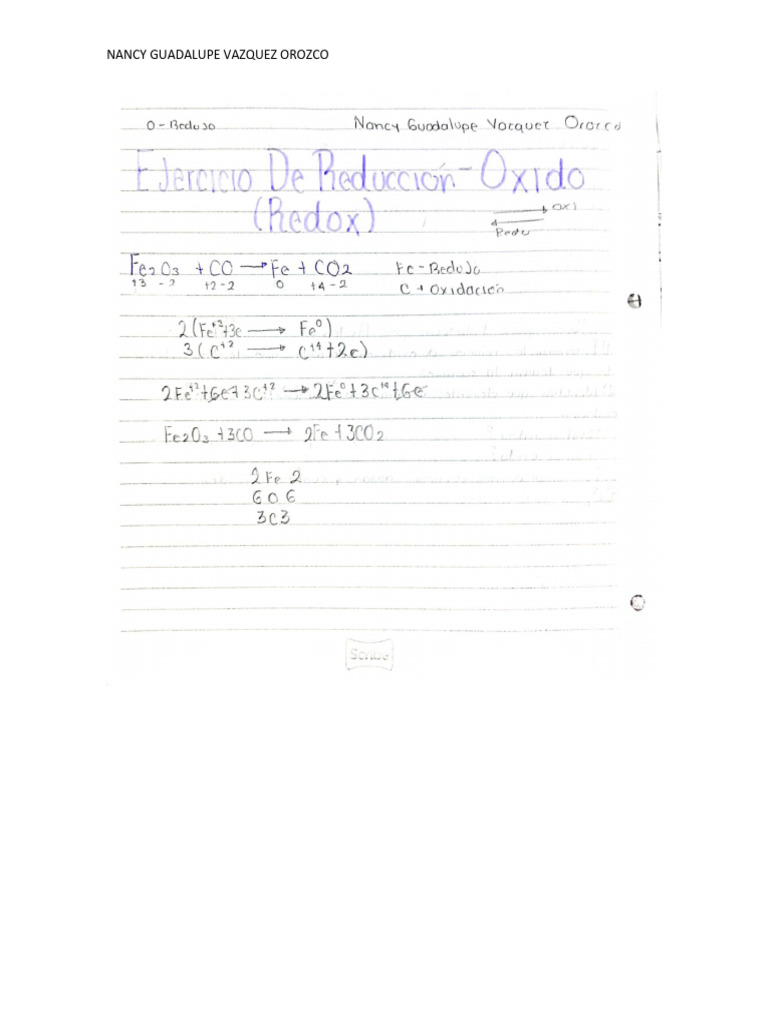 NANCY GUADALUPE VAZQUEZ OROZCO
O - Redujo Nancy Guadalupe Vazquez Orozco
Ejercicio De Reducción - Oxido
(Redox)
OXI
Redu
Fe2O3 + CO → Fe + CO2 Fe - Redujo
+3 -2 +2 -2 0 +4 -2 C + Oxidación
2(Fe+3+3e → Fe0)
3(C+2 → C+4+2e)
2Fe+3+6e+3C+2 → 2Fe0+3C+4+6e
Fe2O3 +3CO → 2Fe +3CO2
2 Fe 2
6 O 6
3 C 3
Scribe